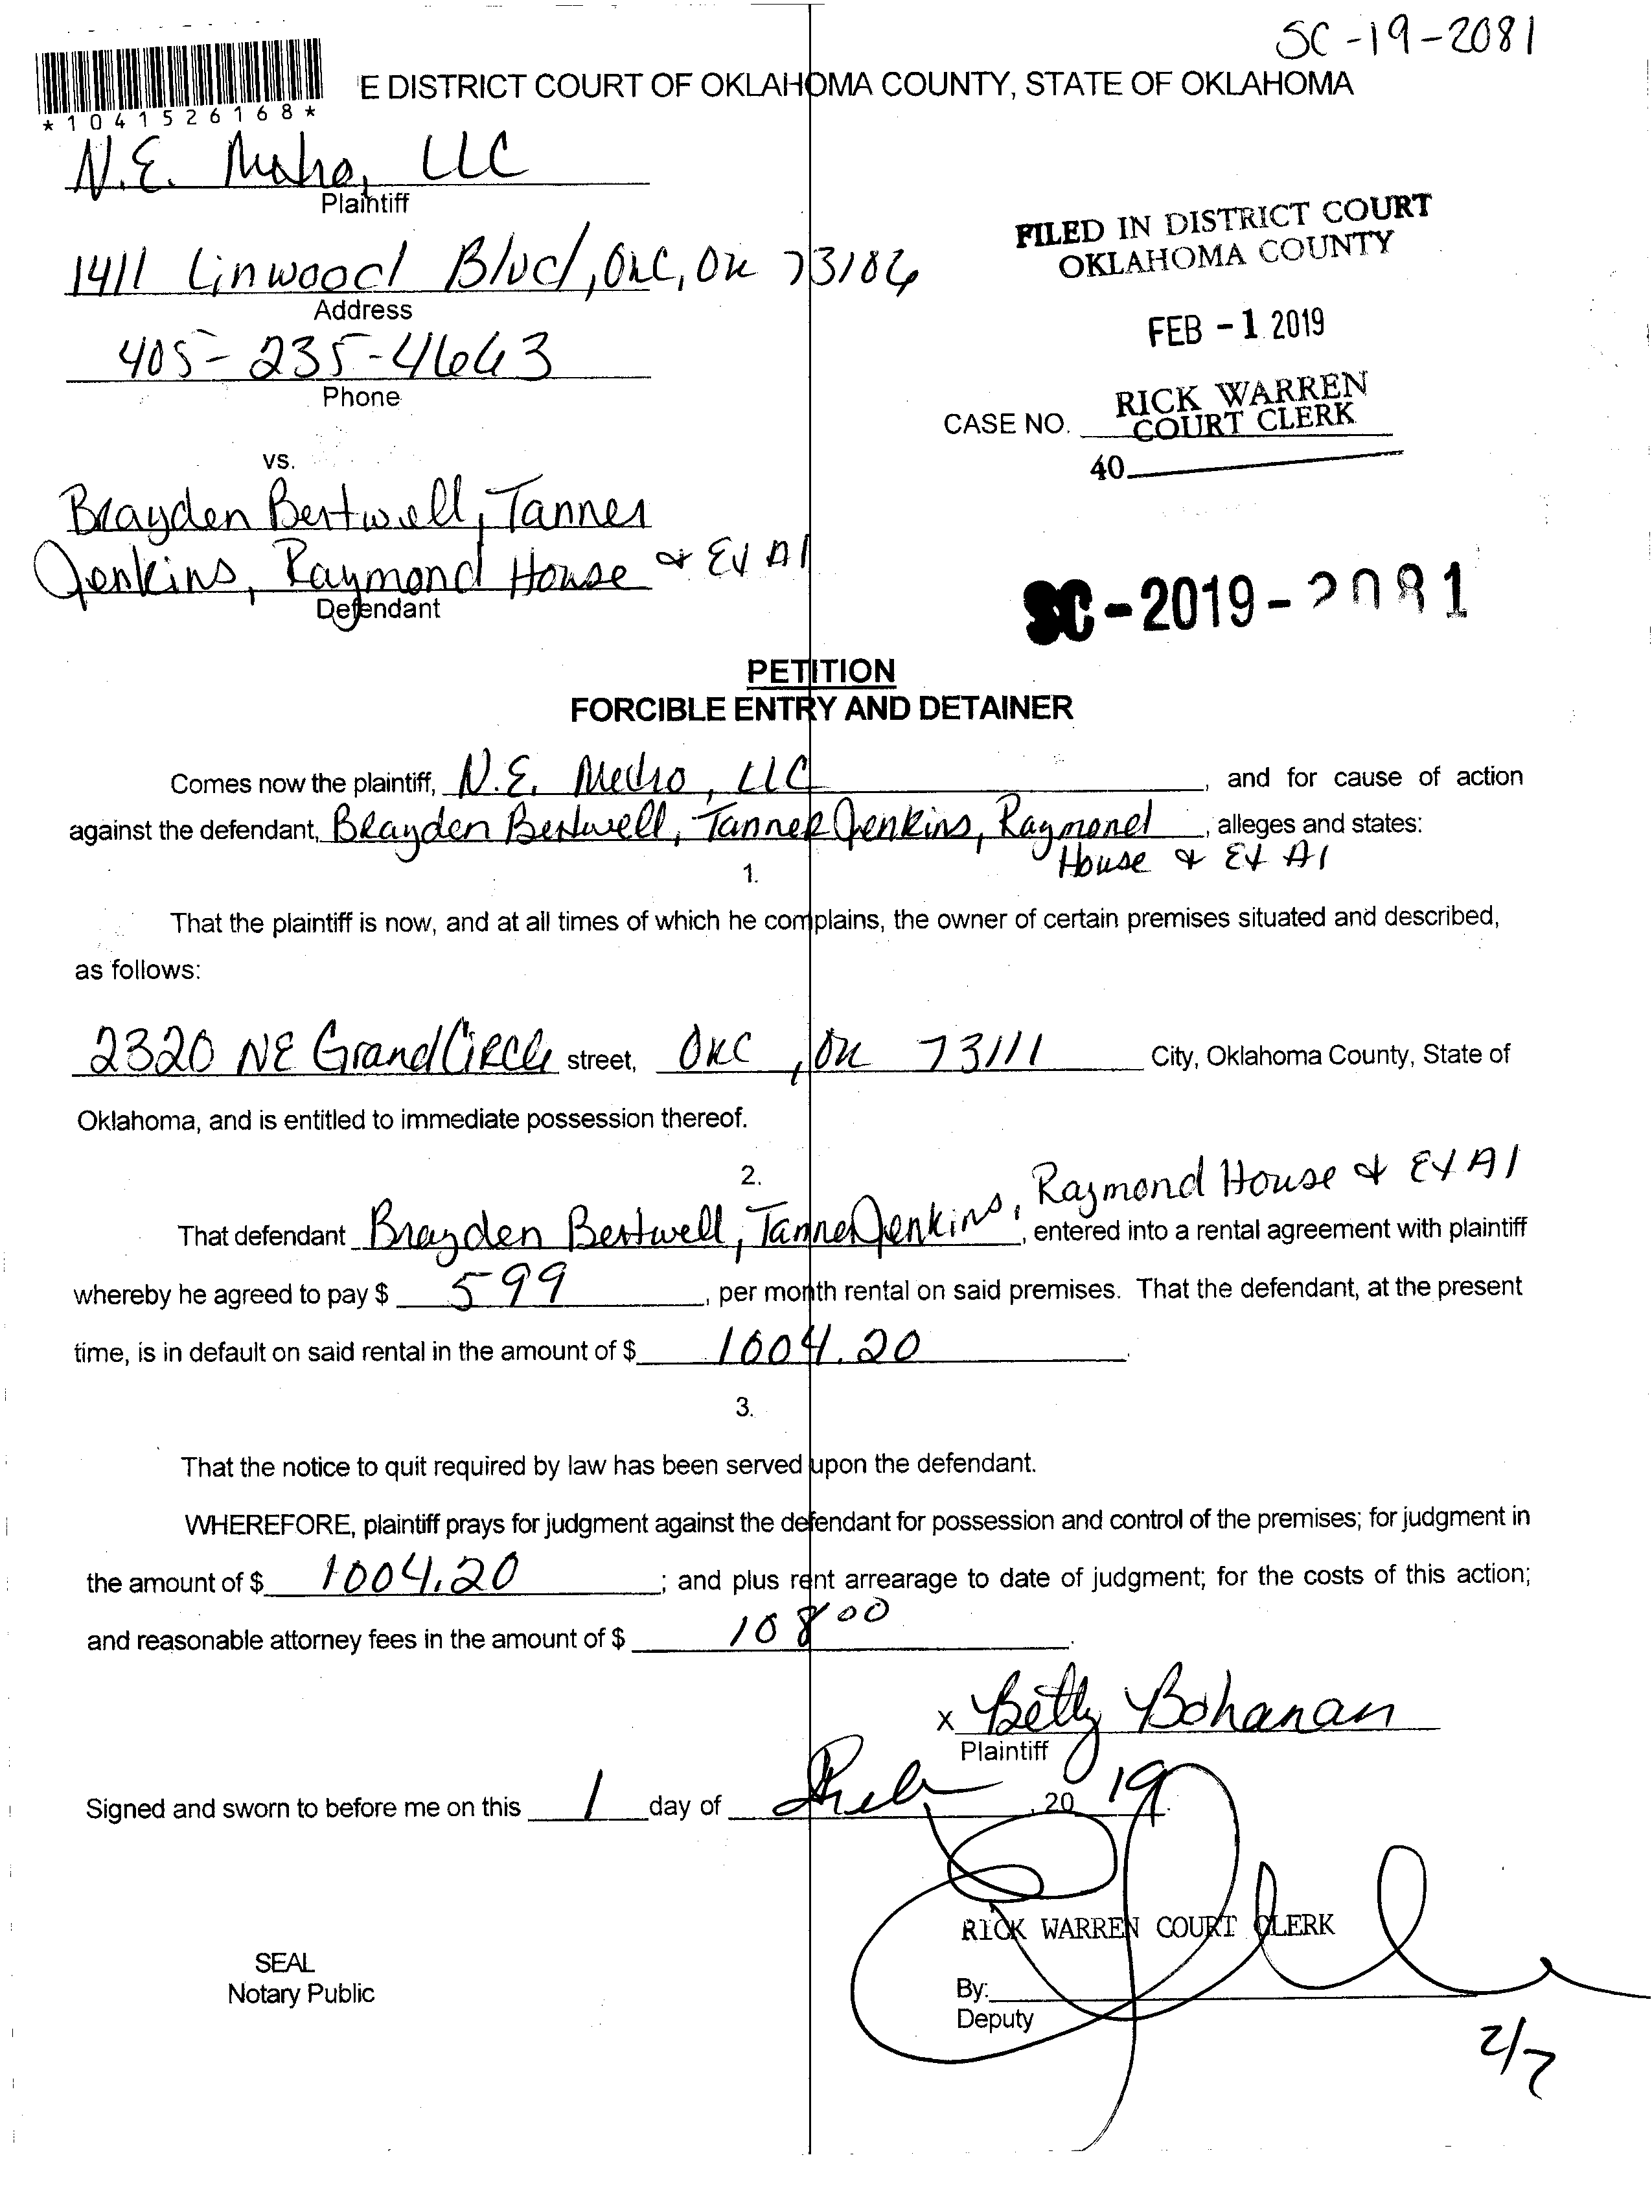 SC-19-2081
E DISTRICT COURT OF OKLAHOMA COUNTY, STATE OF OKLAHOMA
*1041526168*
N.E. , LLC
Plaintiff
1411 Linwood Blvd, OKC, OK 73106
Address
405-235-4663
Phone
FILED IN DISTRICT COURT
OKLAHOMA COUNTY
FEB -1 2019
RICK WARREN
COURT CLERK
CASE NO.
40
vs.
Brayden Bertwell, Tanner
Jenkins, Raymond House & Et Al
Defendant
SC-2019-2081
PETITION
FORCIBLE ENTRY AND DETAINER
Comes now the plaintiff, N.E. Metro, LLC, and for cause of action
against the defendant, Brayden Bertwell, Tanner Jenkins, Raymond, alleges and states:
House & Et Al
1.
That the plaintiff is now, and at all times of which he complains, the owner of certain premises situated and described,
as follows:
2320 NE Grand Circle street, OKC, OK 73111 City, Oklahoma County, State of
Oklahoma, and is entitled to immediate possession thereof.
2.
Raymond House & Et Al
That defendant Brayden Bertwell, Tanner Jenkins, , entered into a rental agreement with plaintiff
whereby he agreed to pay $ 599, per month rental on said premises. That the defendant, at the present
time, is in default on said rental in the amount of $ 1004.20.
3.
That the notice to quit required by law has been served upon the defendant.
WHEREFORE, plaintiff prays for judgment against the defendant for possession and control of the premises; for judgment in
the amount of $ 1004.20; and plus rent arrearage to date of judgment; for the costs of this action;
and reasonable attorney fees in the amount of $ 108 00.
x Betty Bohanan
Plaintiff
Signed and sworn to before me on this 1 day of Feb, 20 19.
RICK WARREN COURT CLERK
SEAL
Notary Public
By:
Deputy
2/7